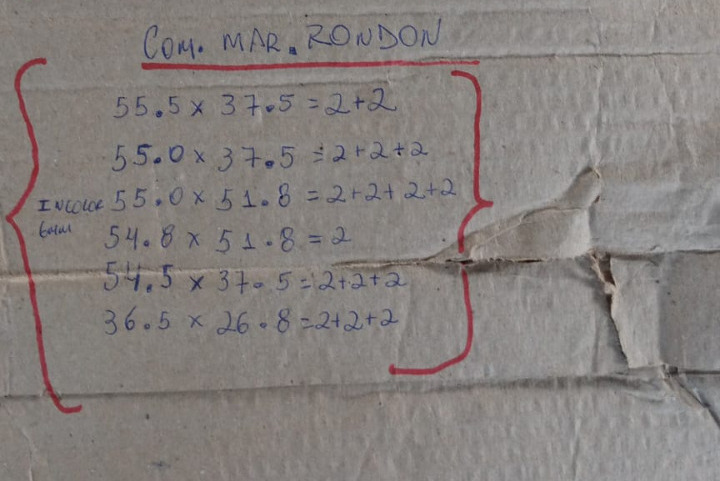 COM. MAR. RONDON
55.5 x 37.5 = 2+2
55.0 x 37.5 = 2+2+2
INCOLOR 55.0 x 51.8 = 2+2+2+2
6MM 54.8 x 51.8 = 2
54.5 x 37.5 = 2+2+2
36.5 x 26.8 = 2+2+2